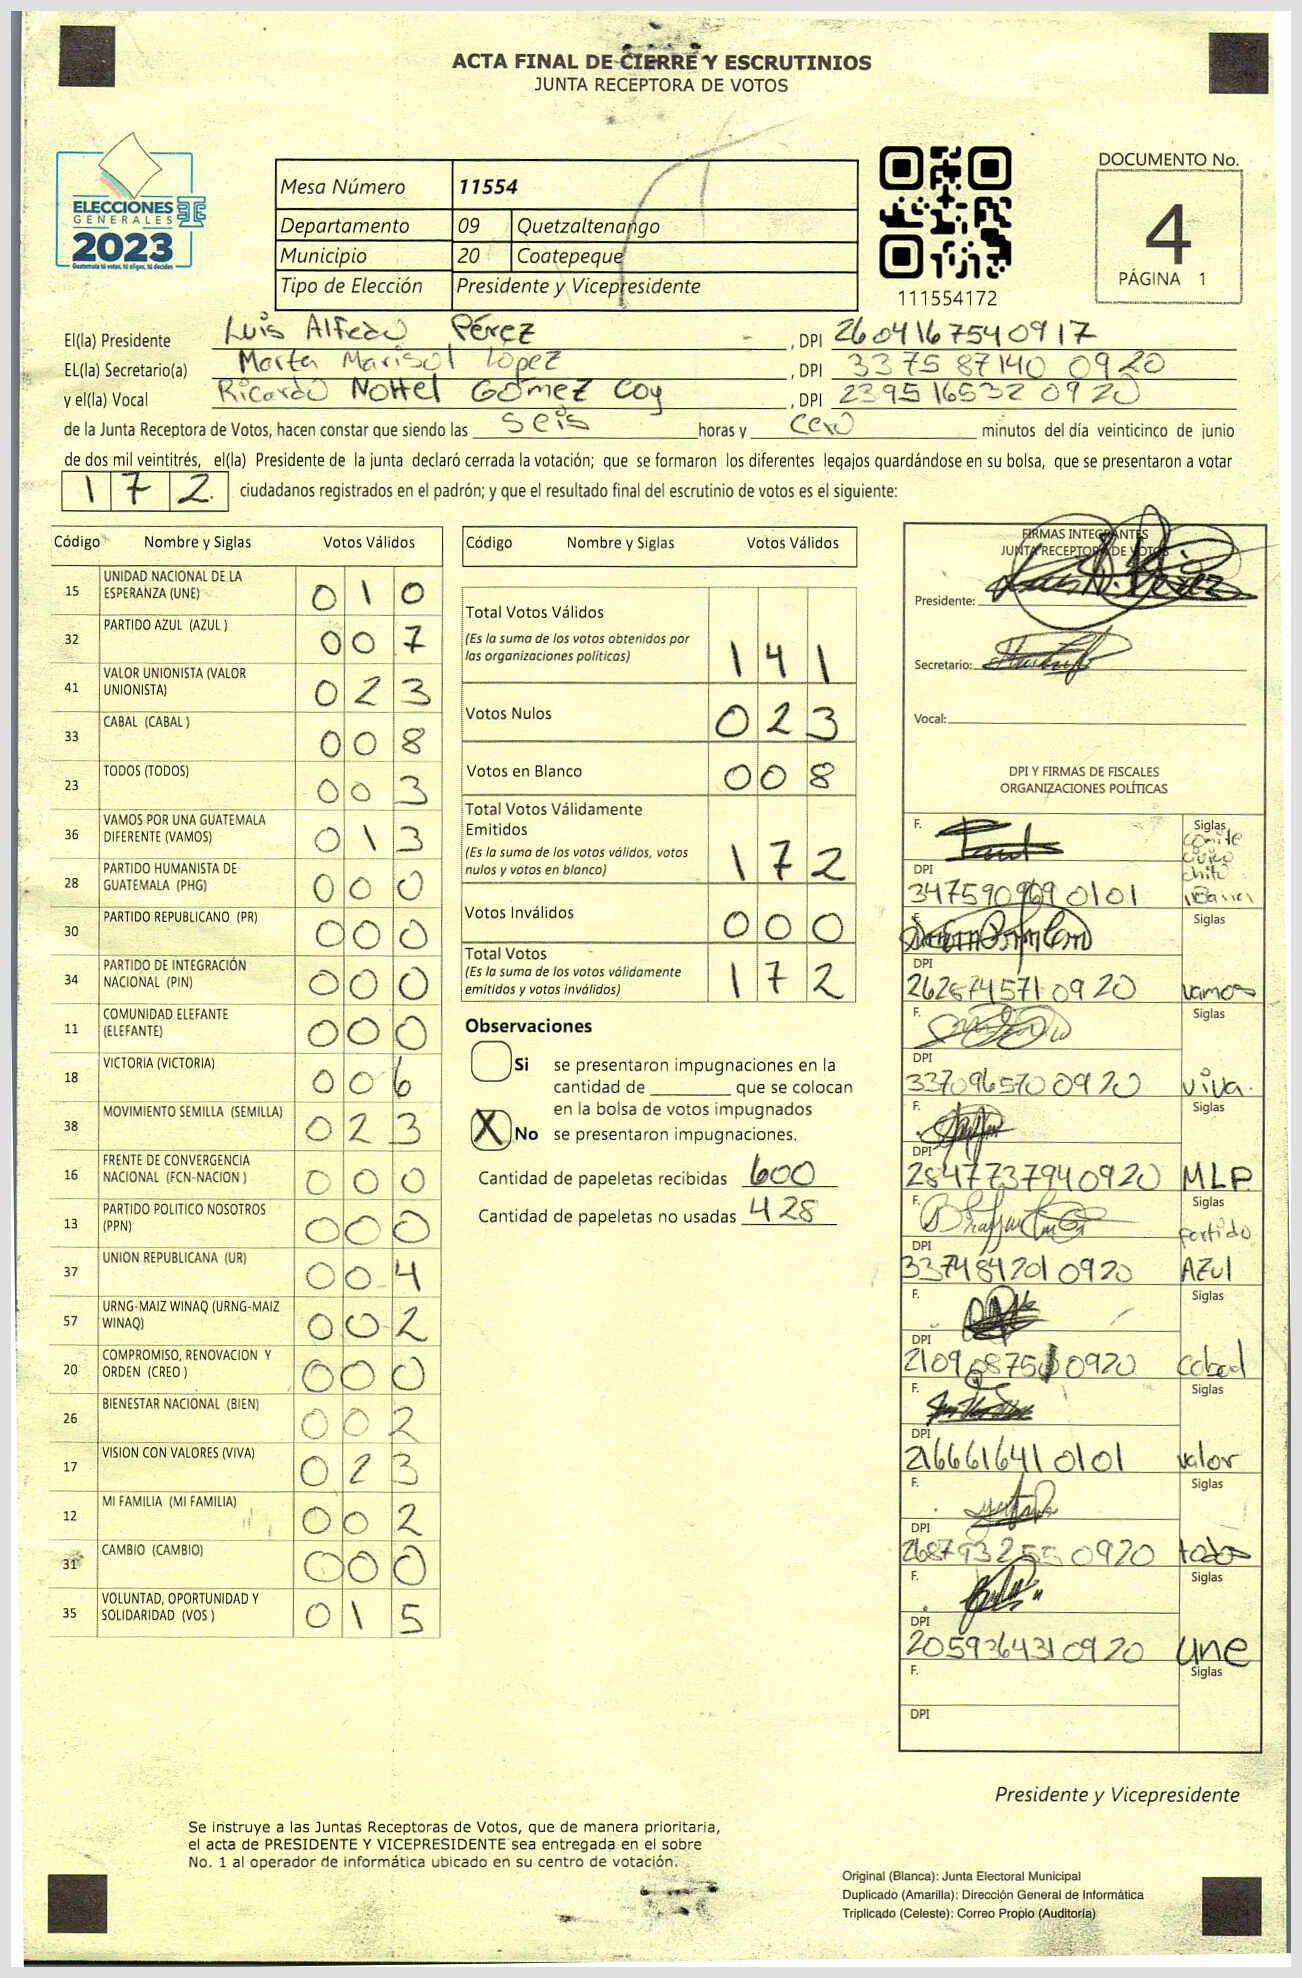 ACTA FINAL DE CIERRE Y ESCRUTINIOS
JUNTA RECEPTORA DE VOTOS
ELECCIONES
GENERALES
2023
Guatemala tú votas, tú eliges, tú decides
Mesa Número 11554
Departamento 09 Quetzaltenango
Municipio 20 Coatepeque
Tipo de Elección Presidente y Vicepresidente
111554172
DOCUMENTO No.
4
PÁGINA 1
El(la) Presidente Luis Alfredo Pérez , DPI 2604167540917
EL(la) Secretario(a) Marta Marisol Lopez , DPI 3375 87140 0920
y el(la) Vocal Ricardo Nottel Gómez Coy , DPI 2395 16532 0920
de la Junta Receptora de Votos, hacen constar que siendo las seis horas y cero minutos del día veinticinco de junio
de dos mil veintitrés, el(la) Presidente de la junta declaró cerrada la votación; que se formaron los diferentes legajos guardándose en su bolsa, que se presentaron a votar
172 ciudadanos registrados en el padrón; y que el resultado final del escrutinio de votos es el siguiente:
Código Nombre y Siglas Votos Válidos
15 UNIDAD NACIONAL DE LA ESPERANZA (UNE) 010
32 PARTIDO AZUL (AZUL ) 007
41 VALOR UNIONISTA (VALOR UNIONISTA) 023
33 CABAL (CABAL ) 008
23 TODOS (TODOS) 003
36 VAMOS POR UNA GUATEMALA DIFERENTE (VAMOS) 013
28 PARTIDO HUMANISTA DE GUATEMALA (PHG) 000
30 PARTIDO REPUBLICANO (PR) 000
34 PARTIDO DE INTEGRACIÓN NACIONAL (PIN) 000
11 COMUNIDAD ELEFANTE (ELEFANTE) 000
18 VICTORIA (VICTORIA) 006
38 MOVIMIENTO SEMILLA (SEMILLA) 023
16 FRENTE DE CONVERGENCIA NACIONAL (FCN-NACION ) 000
13 PARTIDO POLITICO NOSOTROS (PPN) 000
37 UNION REPUBLICANA (UR) 004
57 URNG-MAIZ WINAQ (URNG-MAIZ WINAQ) 002
20 COMPROMISO, RENOVACION Y ORDEN (CREO ) 000
26 BIENESTAR NACIONAL (BIEN) 002
17 VISION CON VALORES (VIVA) 023
12 MI FAMILIA (MI FAMILIA) 002
31 CAMBIO (CAMBIO) 000
35 VOLUNTAD, OPORTUNIDAD Y SOLIDARIDAD (VOS ) 015
Código Nombre y Siglas Votos Válidos
Total Votos Válidos 141
(Es la suma de los votos obtenidos por
las organizaciones políticas)
Votos Nulos 023
Votos en Blanco 008
Total Votos Válidamente
Emitidos 172
(Es la suma de los votos válidos, votos
nulos y votos en blanco)
Votos Inválidos 000
Total Votos 172
(Es la suma de los votos válidamente
emitidos y votos inválidos)
Observaciones
Si se presentaron impugnaciones en la
cantidad de que se colocan
en la bolsa de votos impugnados
X No se presentaron impugnaciones.
Cantidad de papeletas recibidas 600
Cantidad de papeletas no usadas 428
FIRMAS INTEGRANTES
JUNTA RECEPTORA DE VOTOS
Presidente:
Secretario:
Vocal:
DPI Y FIRMAS DE FISCALES
ORGANIZACIONES POLÍTICAS
F. Siglas
comite
civico
chito
DPI
F. Siglas
DPI
0920 vamos
F. Siglas
DPI
337096570 0920 viva.
F. Siglas
DPI
2847737940920 MLP
F. Siglas
partido
DPI
337484201 0920 AZul
F. Siglas
DPI
0920 cabal
F. Siglas
DPI
216661641 0101 valor
F. Siglas
DPI
268793255 0920 todos
F. Siglas
DPI
205936431 0920 une
F. Siglas
DPI
Presidente y Vicepresidente
Se instruye a las Juntas Receptoras de Votos, que de manera prioritaria,
el acta de PRESIDENTE Y VICEPRESIDENTE sea entregada en el sobre
No. 1 al operador de informática ubicado en su centro de votación.
Original (Blanca): Junta Electoral Municipal
Duplicado (Amarilla): Dirección General de Informática
Triplicado (Celeste): Correo Propio (Auditoría)